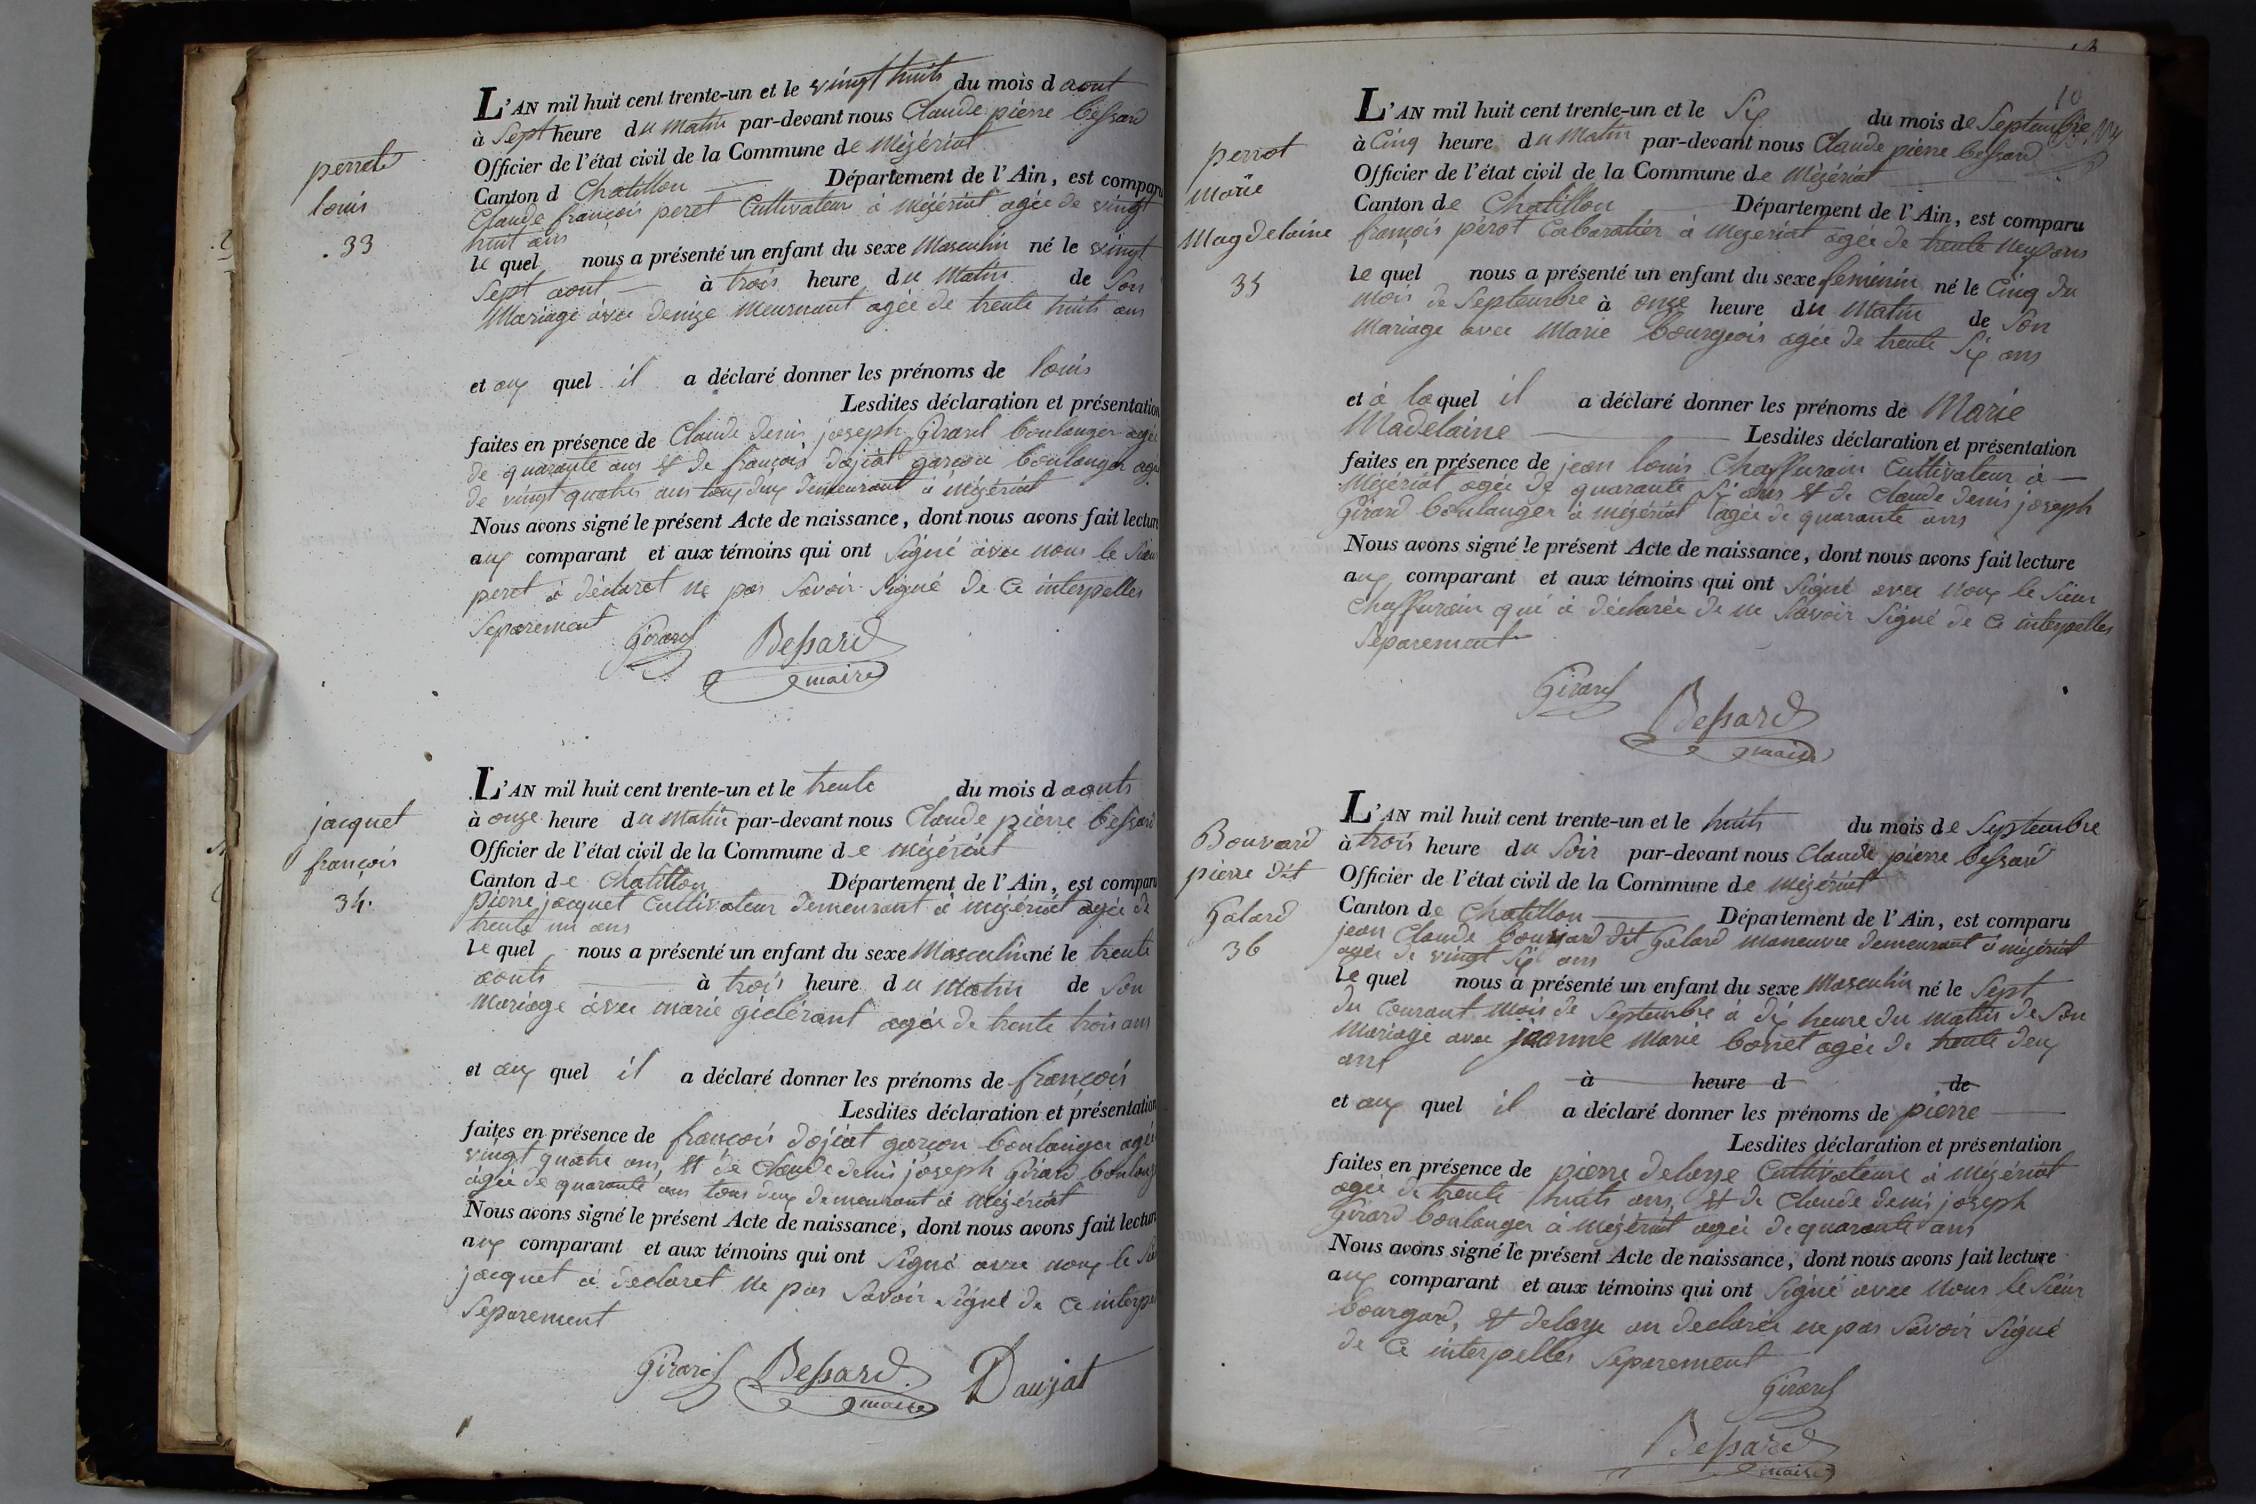 perret
louis
.33
L'AN mil huit cent trente-un et le vingt huits du mois d aout
à Sept heure du matin par-devant nous Claude pierre bessard
Officier de l'état civil de la Commune de Mézériat
Canton d Chatillon Département de l'Ain, est comparu
Claude françois peret Cultivateur à mézériat agée de vingt
huit ans
le quel nous a présenté un enfant du sexe Masculin né le vingt
Sept aout à trois heure du Matin de Son
Mariage avec denize meurnant agée de trente huits ans
et aux quel il a déclaré donner les prénoms de louis
Lesdites déclaration et présentation
faites en présence de Claude denis joseph Girard boulanger agée
de quarante ans et de françois dojat garçon boulanger agé
de vingt quatres ans tous deux demeurant à mézériat
Nous avons signé le présent Acte de naissance, dont nous avons fait lecture
aux comparant et aux témoins qui ont Signé avec nous le Sieur
peret à déclaret ne pas Savoir Signé de ce interpelles
Separement
Girard Bessard
maire
jacquet
françois
34.
L'AN mil huit cent trente-un et le trente du mois d aouts
à onze heure du Matin par-devant nous Claude pierre bessard
Officier de l'état civil de la Commune de mézériat
Canton de Chatillon Département de l'Ain, est comparu
pierre jacquet Cultivateur demeurant à mézériat agée de
trente un ans
le quel nous a présenté un enfant du sexe Masculin né le trente
aouts à trois heure du Matin de Son
Mariage avec marie giclérant agée de trente trois ans
et aux quel il a déclaré donner les prénoms de françois
Lesdites déclaration et présentation
faites en présence de françois dojat garçon boulanger agée
vingt quatre ans, et de Claude denis joseph Girard boulang
agée de quarante ans tous deux demeurant à Mézériat
Nous avons signé le présent Acte de naissance, dont nous avons fait lecture
aux comparant et aux témoins qui ont Signé avec nous le
jacquet à declaret ne pas Savoir Signé de ce interpe
Separement
Girard Bessard Daujat
maire
10
perrot
marie
Magdelaine
35
L'AN mil huit cent trente-un et le Six du mois de Septembre
à Cinq heure du Matin par-devant nous Claude pierre bessard
Officier de l'état civil de la Commune de Mézériat
Canton de Chatillon Département de l'Ain, est comparu
françois pérot Cabaratier à mezeriat agée de trente neuf ans
le quel nous a présenté un enfant du sexe feminin né le Cinq du
mois de Septembre à onze heure du Matin de Son
mariage avec Marie bourgeois agée de trente Six ans
et à laquel il a déclaré donner les prénoms de Marie
Madelaine Lesdites déclaration et présentation
faites en présence de jean louis Chaffurain Cultivateur à
Mézériat agée de quarante Si ans et de Claude denis joseph
Girard boulanger à mezériat agée de quarante ans
Nous avons signé le présent Acte de naissance, dont nous avons fait lecture
aux comparant et aux témoins qui ont Signé avec Nous le Sieur
Chaffurain qui à déclarée de ne Savoir Signé de ce interpelles
Separement
Girard
Bessard
maire
Bouvard
pierre dit
Galard
36
L'AN mil huit cent trente-un et le huits du mois de Septembre
à trois heure du Soir par-devant nous Claude pierre bessard
Officier de l'état civil de la Commune de mézériat
Canton de Chatillon Département de l'Ain, est comparu
jean Claude bouvard dit Galard maneuvre demeurant à mézériat
agée de vingt Six ans
le quel nous a présenté un enfant du sexe Masculin né le Sept
du Courant mois de Septembre à dix heure du matin de Son
Mariage avec jeanne Marie borret agée de trente deux
ans
à heure d de
et aux quel il a déclaré donner les prénoms de pierre
Lesdites déclaration et présentation
faites en présence de pierre delaye Cultivateure à Mézériat
agée de trente huits ans, et de Claude denis joseph
Girard boulanger à mézériat agée de quarante ans
Nous avons signé le présent Acte de naissance, dont nous avons fait lecture
aux comparant et aux témoins qui ont Signé avec nous le Sieur
bourgard, et delaye on declarée ne pas Savoir Signé
de ce interpelles Separement
Girard
Bessard
maire